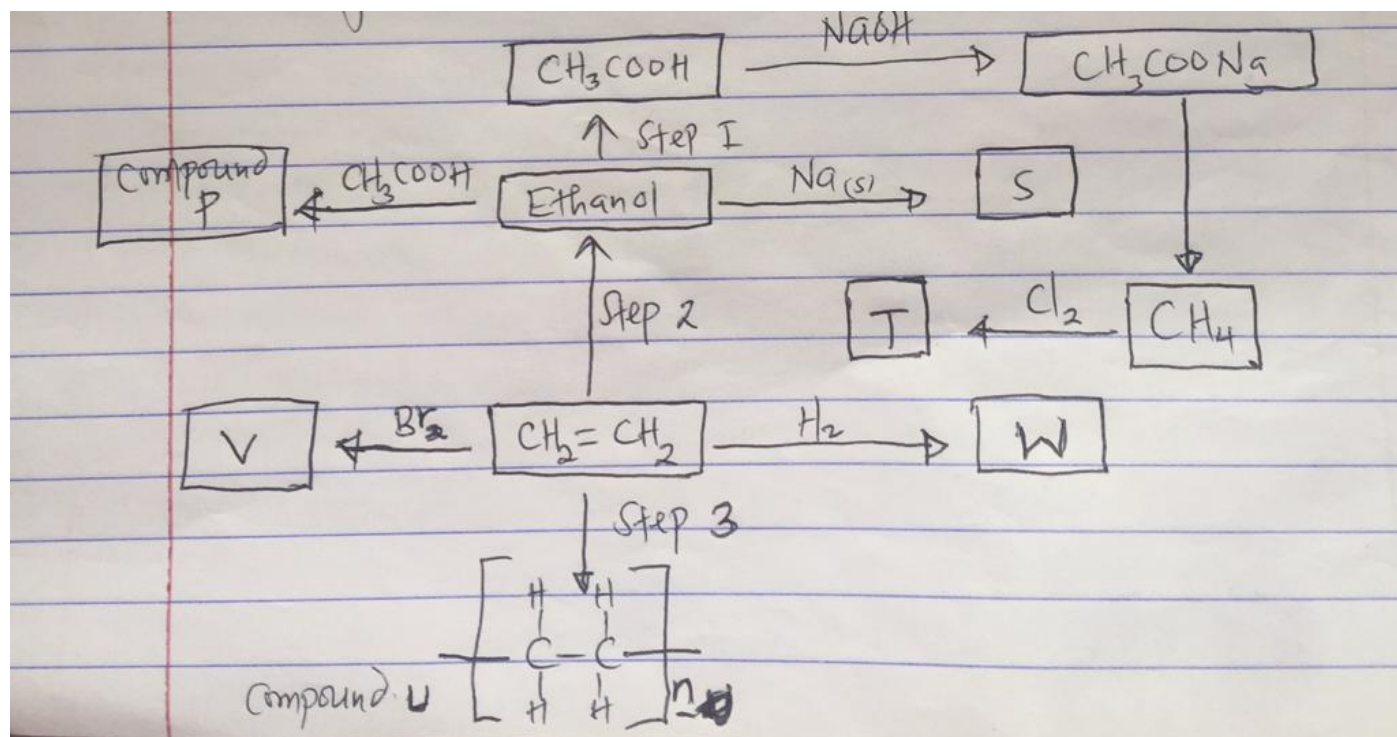 NaOH
CH₃COOH
CH₃COONa
Step I
Compound P
CH₃COOH
Ethanol
Na(s)
S
Step 2
T
Cl₂
CH₄
V
Br₂
CH₂=CH₂
H₂
W
Step 3
H H
C–C
H H
n
Compound U